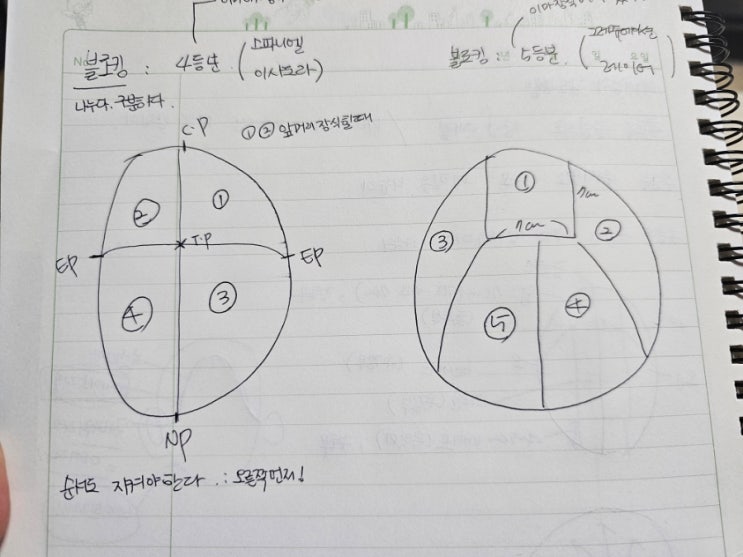 블로킹 : 4등분 (스파니엘
이사도라)
나누다. 구분하다.
블로킹 : 5등분 (그래쥬에이션
레이어)
①② 앞머리 장식할때
C.P
②
①
T.P
EP
EP
④
③
NP
①
7cm
7cm
③
②
⑤
④
순서도 지켜야한다. : 오른쪽먼저!